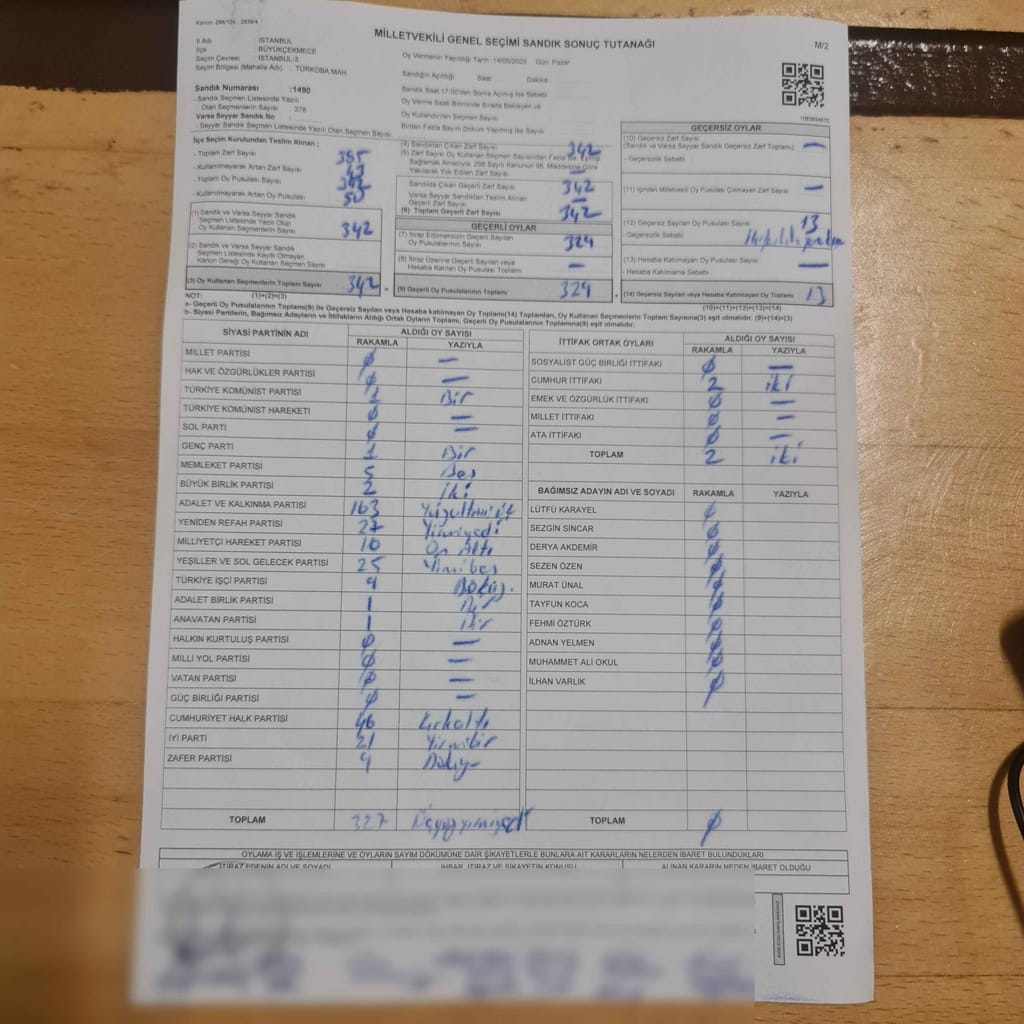 Kanun: 298/105 : 2839/4
MİLLETVEKİLİ GENEL SEÇİMİ SANDIK SONUÇ TUTANAĞI
M/2
İl Adı : İSTANBUL
İlçe : BÜYÜKÇEKMECE
Seçim Çevresi : İSTANBUL-3
Seçim Bölgesi (Mahalle Adı) : TÜRKOBA MAH.
Oy Vermenin Yapıldığı Tarih : 14/05/2023 Gün: Pazar
Sandığın Açıldığı Saat: Dakika
Sandık Numarası :1490
- Sandık Seçmen Listesinde Yazılı
Olan Seçmenlerin Sayısı : 378
Varsa Seyyar Sandık No :
- Seyyar Sandık Seçmen Listesinde Yazılı Olan Seçmen Sayısı
Sandık Saat 17:00'den Sonra Açılmış İse Sebebi
Oy Verme Saati Bitiminde Sırada Bekleyen ve
Oy Kullandırılan Seçmen Sayısı
Birden Fazla Sayım Döküm Yapılmış İse Sayısı
İlçe Seçim Kurulundan Teslim Alınan ;
- Toplam Zarf Sayısı 385
- Kullanılmayarak Artan Zarf Sayısı 43
- Toplam Oy Pusulası Sayısı
- Kullanılmayarak Artan Oy Pusulası 50
(1) Sandık ve Varsa Seyyar Sandık
Seçmen Listesinde Yazılı Olup
Oy Kullanan Seçmenlerin Sayısı 342
(2) Sandık ve Varsa Seyyar Sandık
Seçmen Listesinde Kayıtlı Olmayan
Kanun Gereği Oy Kullanan Seçmen Sayısı
(3) Oy Kullanan Seçmenlerin Toplam Sayısı 342
(4) Sandıktan Çıkan Zarf Sayısı 342
(5) Zarf Sayısı Oy Kullanan Seçmen Sayısından Fazla ise, Eşitliği
Sağlamak Amacıyla, 298 Sayılı Kanunun 98. Maddesine Göre
Yakılarak Yok Edilen Zarf Sayısı —
Sandıkta Çıkan Geçerli Zarf Sayısı 342
Varsa Seyyar Sandıktan Teslim Alınan
Geçerli Zarf Sayısı —
(6) Toplam Geçerli Zarf Sayısı 342
GEÇERLİ OYLAR
(7) İtiraz Edilmeksizin Geçerli Sayılan
Oy Pusulalarının Sayısı 329
(8) İtiraz Üzerine Geçerli Sayılan veya
Hesaba Katılan Oy Pusulası Toplamı —
(9) Geçerli Oy Pusulalarının Toplamı 329
GEÇERSİZ OYLAR
(10) Geçersiz Zarf Sayısı
(Sandık ve Varsa Seyyar Sandık Geçersiz Zarf Toplamı) —
- Geçersizlik Sebebi
(11) İçinden Milletvekili Oy Pusulası Çıkmayan Zarf Sayısı —
(12) Geçersiz Sayılan Oy Pusulası Sayısı 13
Geçersizlik Sebebi
(13) Hesaba Katılmayan Oy Pusulası Sayısı —
- Hesaba Katılmama Sebebi
(14) Geçersiz Sayılan veya Hesaba Katılmayan Oy Toplamı 13
NOT: (1)+(2)=(3) (10)+(11)+(12)+(13)=(14)
a- Geçerli Oy Pusulalarının Toplamı(9) ile Geçersiz Sayılan veya Hesaba katılmayan Oy Toplamı(14) Toplamları, Oy Kullanan Seçmenlerin Toplam Sayısına(3) eşit olmalıdır. (9)+(14)=(3)
b- Siyasi Partilerin, Bağımsız Adayların ve İttifakların Aldığı Ortak Oyların Toplamı, Geçerli Oy Pusulalarının Toplamına(9) eşit olmalıdır.
SİYASİ PARTİNİN ADI ALDIĞI OY SAYISI
RAKAMLA YAZIYLA
MİLLET PARTİSİ 0 —
HAK VE ÖZGÜRLÜKLER PARTİSİ 0 —
TÜRKİYE KOMÜNİST PARTİSİ 1 Bir
TÜRKİYE KOMÜNİST HAREKETİ 0 —
SOL PARTİ 0 —
GENÇ PARTİ 1 Bir
MEMLEKET PARTİSİ 5 Beş
BÜYÜK BİRLİK PARTİSİ 2 İki
ADALET VE KALKINMA PARTİSİ 163
YENİDEN REFAH PARTİSİ 27 Yirmiyedi
MİLLİYETÇİ HAREKET PARTİSİ 16 On Altı
YEŞİLLER VE SOL GELECEK PARTİSİ 25 Yirmibeş
TÜRKİYE İŞÇİ PARTİSİ 9 Dokuz
ADALET BİRLİK PARTİSİ 1 Bir
ANAVATAN PARTİSİ 1 Bir
HALKIN KURTULUŞ PARTİSİ 0 —
MİLLİ YOL PARTİSİ 0 —
VATAN PARTİSİ 0 —
GÜÇ BİRLİĞİ PARTİSİ 0 —
CUMHURİYET HALK PARTİSİ 46 Kırkaltı
İYİ PARTİ 21 Yirmibir
ZAFER PARTİSİ 9 Dokuz
TOPLAM 327 Üçyüzyirmiyedi
İTTİFAK ORTAK OYLARI ALDIĞI OY SAYISI
RAKAMLA YAZIYLA
SOSYALİST GÜÇ BİRLİĞİ İTTİFAKI 0 —
CUMHUR İTTİFAKI 2 iki
EMEK VE ÖZGÜRLÜK İTTİFAKI 0 —
MİLLET İTTİFAKI 0 —
ATA İTTİFAKI 0 —
TOPLAM 2 iki
BAĞIMSIZ ADAYIN ADI VE SOYADI RAKAMLA YAZIYLA
LÜTFÜ KARAYEL 0
SEZGİN SİNCAR 0
DERYA AKDEMİR 0
SEZEN ÖZEN 0
MURAT ÜNAL 0
TAYFUN KOCA 0
FEHMİ ÖZTÜRK 0
ADNAN YELMEN 0
MUHAMMET ALİ OKUL 0
İLHAN VARLIK 0
TOPLAM 0
OYLAMA İŞ VE İŞLEMLERİNE VE OYLARIN SAYIM DÖKÜMÜNE DAİR ŞİKAYETLERLE BUNLARA AİT KARARLARIN NELERDEN İBARET BULUNDUKLARI
İTİRAZ EDENİN ADI VE SOYADI İHBAR, İTİRAZ VE ŞİKAYETİN KONUSU ALINAN KARARIN NEDEN İBARET OLDUĞU